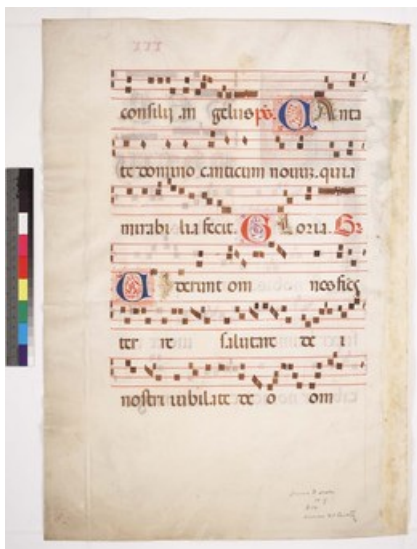 III
consilij m gelus ps. CAnta
te domino canticum nouum. quia
mirabilia fecit. GLoria. Gr
UIderunt om nes fies
ter re salutare de i
nostri iubilate de o om